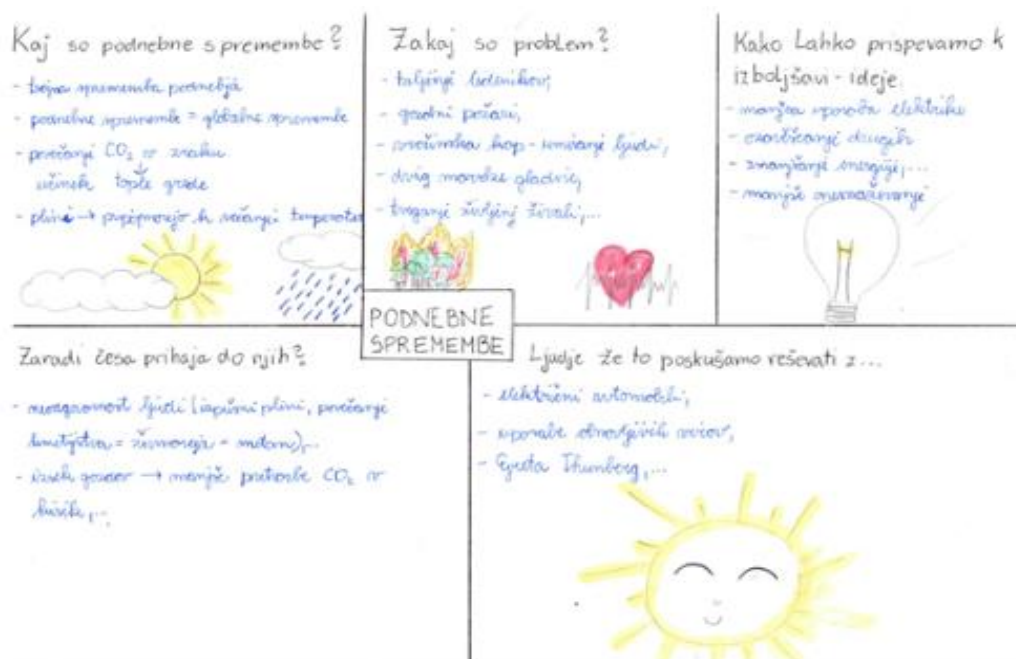 Kaj so podnebne spremembe?
- trajna sprememba podnebja
- podnebne spremembe = globalne spremembe
- povečanje CO₂ v zraku
↓
učinek tople grede
- plini → pripomorejo k večanju temperature
Zakaj so problem?
- taljenje ledenikov,
- gozdni požari,
- vročinska kap - umiranje ljudi,
- dvig morske gladine,
- življenj živali,...
Kako lahko prispevamo k
izboljšavi - ideje
- manjša uporaba elektrike
- ozaveščanje drugih
- zmanjšanje energije,...
- manjše onesnaževanje
PODNEBNE
SPREMEMBE
Zaradi česa prihaja do njih?
- ljudi (izpušni plini, povečanje
kmetijstva = živinoreja - metan),...
- izsek gozdov → manjše pretvorbe CO₂ v
kisik,...
Ljudje že to poskušamo reševati z...
- električni avtomobili,
- uporabe obnovljivih virov,
- Greta Thunberg,...